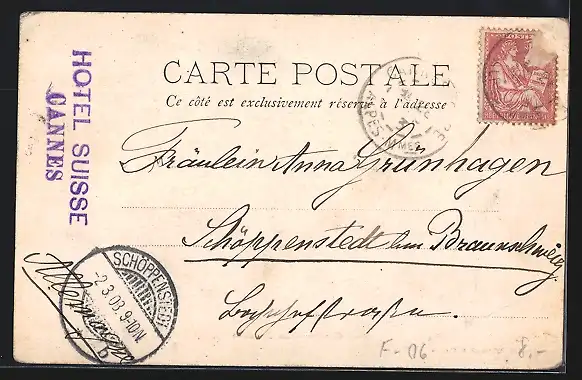 HOTEL SUISSE
CANNES
CARTE POSTALE
Ce côté est exclusivement réservé à l'adresse
POSTE
Fräulein Anna Grünhagen
Schöppenstedt bei Braunschweig
Bahnhofstraße.
SCHÖPPENSTEDT
2.3.03.9-10V.
Allemagne
F-06
8,-